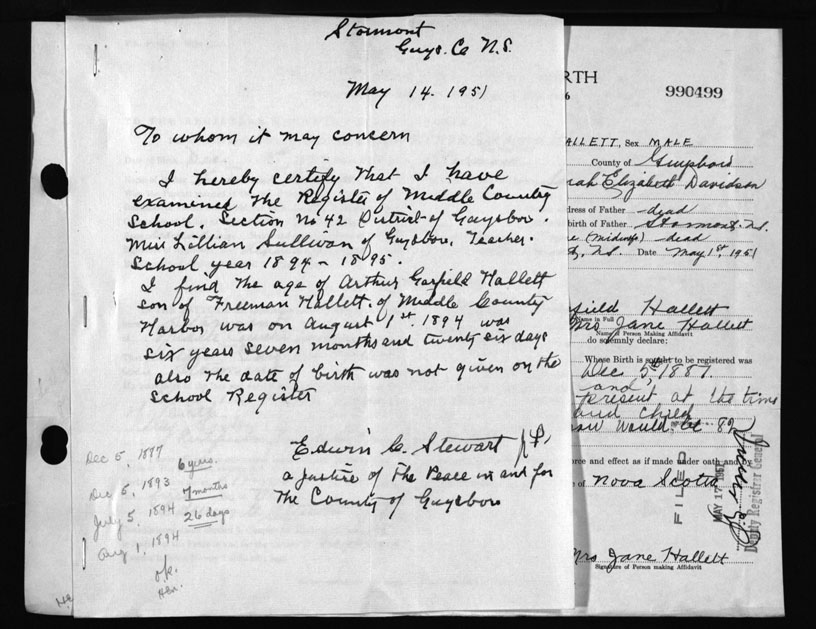 Stormont
Guys. Co N.S.
May 14. 1951
To whom it may concern
I hereby certify that I have
examined the Register of Middle Country
School. Section No 42 District of Guysboro.
Miss Lillian Sullivan of Guysboro, Teacher.
School year 1894 - 1895.
I find the age of Arthur Garfield Hallett
son of Freeman Hallett. of Middle Country
Harbor was on August 1st. 1894 was
six years seven months and twenty six days
also the date of birth was not given on the
School Register
Edwin C. Stewart J.P.
a Justice of The Peace in and for
The County of Guysboro
Dec 5, 1887
6 years.
Dec 5, 1893
7 months
July 5, 1894
26 days
Aug 1, 1894
o.k.
RTH
6
990499
ALLETT, Sex MALE
County of Guysboro
rah Elizabeth Davidson
dress of Father dead
birth of Father Stormont. N.S.
(midwife) dead
N.S. Date May 1st, 1951
field Hallett
Name in Full
Mrs Jane Hallett
Name of Person Making Affidavit
do solemnly declare:
Whose Birth is sought to be registered was
Dec 5th 1887.
and,
present at the time
and child
now would be 82
orce and effect as if made under oath and by
of Nova Scotia
FILED
MAY 17 195
Deputy Registrar General
Mrs Jane Hallett
Signature of Person making Affidavit